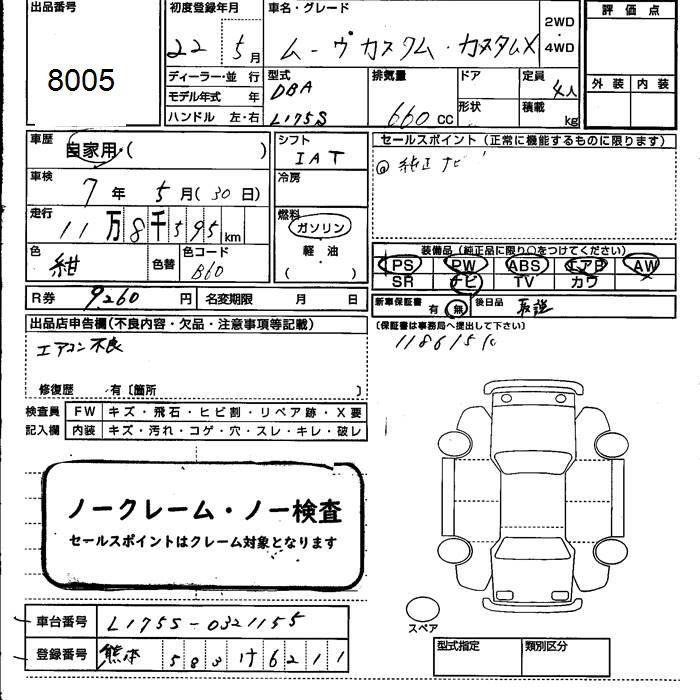 出品番号
8005
初度登録年月
22年 5月
車名・グレード
ムーヴカスタム・カスタムX
2WD・4WD
評価点
外装 内装
ディーラー・並行
モデル年式 年
ハンドル 左・右
型式
DBA
L175S
排気量
660 cc
ドア
形状
定員
4人
積載
kg
車歴
自家用・( )
シフト
IAT
セールスポイント(正常に機能するものに限ります)
@ 純正ナビ
車検
7年 5月(30日)
冷房
走行
11万8千595km
燃料
ガソリン
軽油
( )
色
紺
色替
色コード
B60
装備品(純正品に限り○をつけてください)
PS PW ABS エアB AW
SR ナビ TV カワ
R券 9260円 名変期限 月 日
新車保証書 有 無 後日品 取説
(保証書は事務局へ提出して下さい)
出品店申告欄(不良内容・欠品・注意事項等記載)
エアコン不良
修復歴 ・有〔箇所 〕
検査員記入欄
FW キズ・飛石・ヒビ割・リペア跡・X要
内装 キズ・汚れ・コゲ・穴・スレ・キレ・破レ
ノークレーム・ノー検査
セールスポイントはクレーム対象となります
スペア
車台番号 L175S-0321155
登録番号 熊本 583 け 6211
型式指定 類別区分